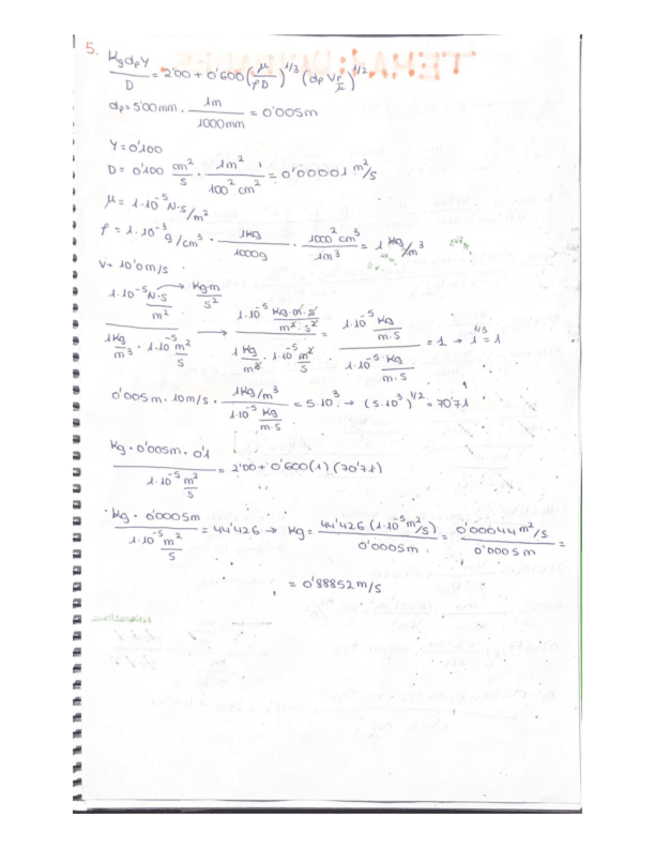 5. Kg dp Y / D = 2'00 + 0'600 (μ / ρD)^1/3 (dp V ρ/μ)^1/2
dp = 5'00 mm · 1m / 1000 mm = 0'005 m
Y = 0'100
D = 0'100 cm²/s · 1m² / 100² cm² = 0'00001 m²/s
μ = 1·10⁻⁵ N·s/m²
ρ = 1·10⁻³ g/cm³ · 1kg / 1000g · 1000² cm³ / 1m³ = 1 kg/m³
V = 10'0 m/s
1·10⁻⁵ N·s / m² → kg·m / s²
1 kg/m³ · 1·10⁻⁵ m²/s → 1·10⁻⁵ kg·m·s / m²·s² / 1 kg/m³ · 1·10⁻⁵ m²/s = 1·10⁻⁵ kg/m·s / 1·10⁻⁵ kg/m·s = 1 → 1^1/3 = 1
0'005m · 10m/s · 1kg/m³ / 1·10⁻⁵ kg/m·s = 5·10³ → (5·10³)^1/2 = 70'71
Kg · 0'005m · 0'1 / 1·10⁻⁵ m²/s = 2'00 + 0'600 (1) (70'71)
Kg · 0'0005m / 1·10⁻⁵ m²/s = 44'426 → Kg = 44'426 (1·10⁻⁵ m²/s) / 0'0005m = 0'00044 m²/s / 0'0005 m =
= 0'88852 m/s